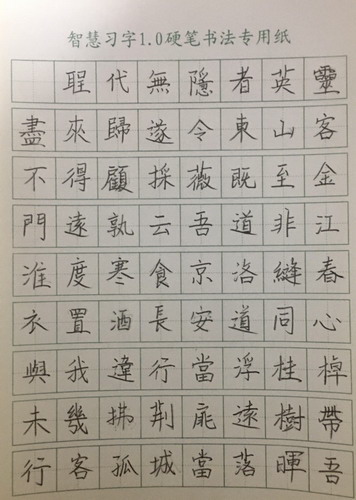 智慧习字1.0硬笔书法专用纸
聖代無隱者英靈
盡來歸遂令東山客
不得顧採薇既至金
門遠孰云吾道非江
淮度寒食京洛縫春
衣置酒長安道同心
與我違行當浮桂棹
未幾拂荆扉遠樹帶
行客孤城當落暉吾